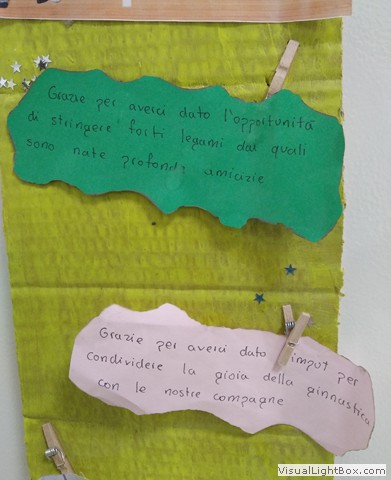 Grazie per averci dato l'opportunità
di stringere forti legami dai quali
sono nate profonde amicizie
Grazie per averci dato imput per
condividere la gioia della ginnastica
con le nostre compagne
VisualLightBox.com